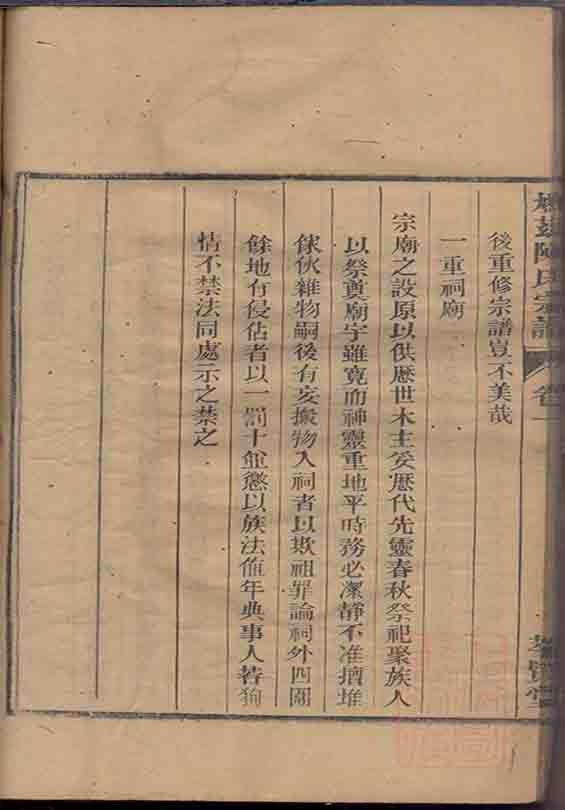 陳氏宗譜
卷一
後重修宗譜豈不美哉
一重祠廟
宗廟之設原以供歷世木主妥歷代先靈春秋祭祀聚族人
以祭奠廟宇雖寬而神靈重地平時務必潔靜不准擅堆
傢伙雜物嗣後有妄搬物入祠者以欺祖罪論祠外四圍
餘地有侵佔者以一罰十並懲以族法值年典事人若狥
情不禁法同處示之禁之